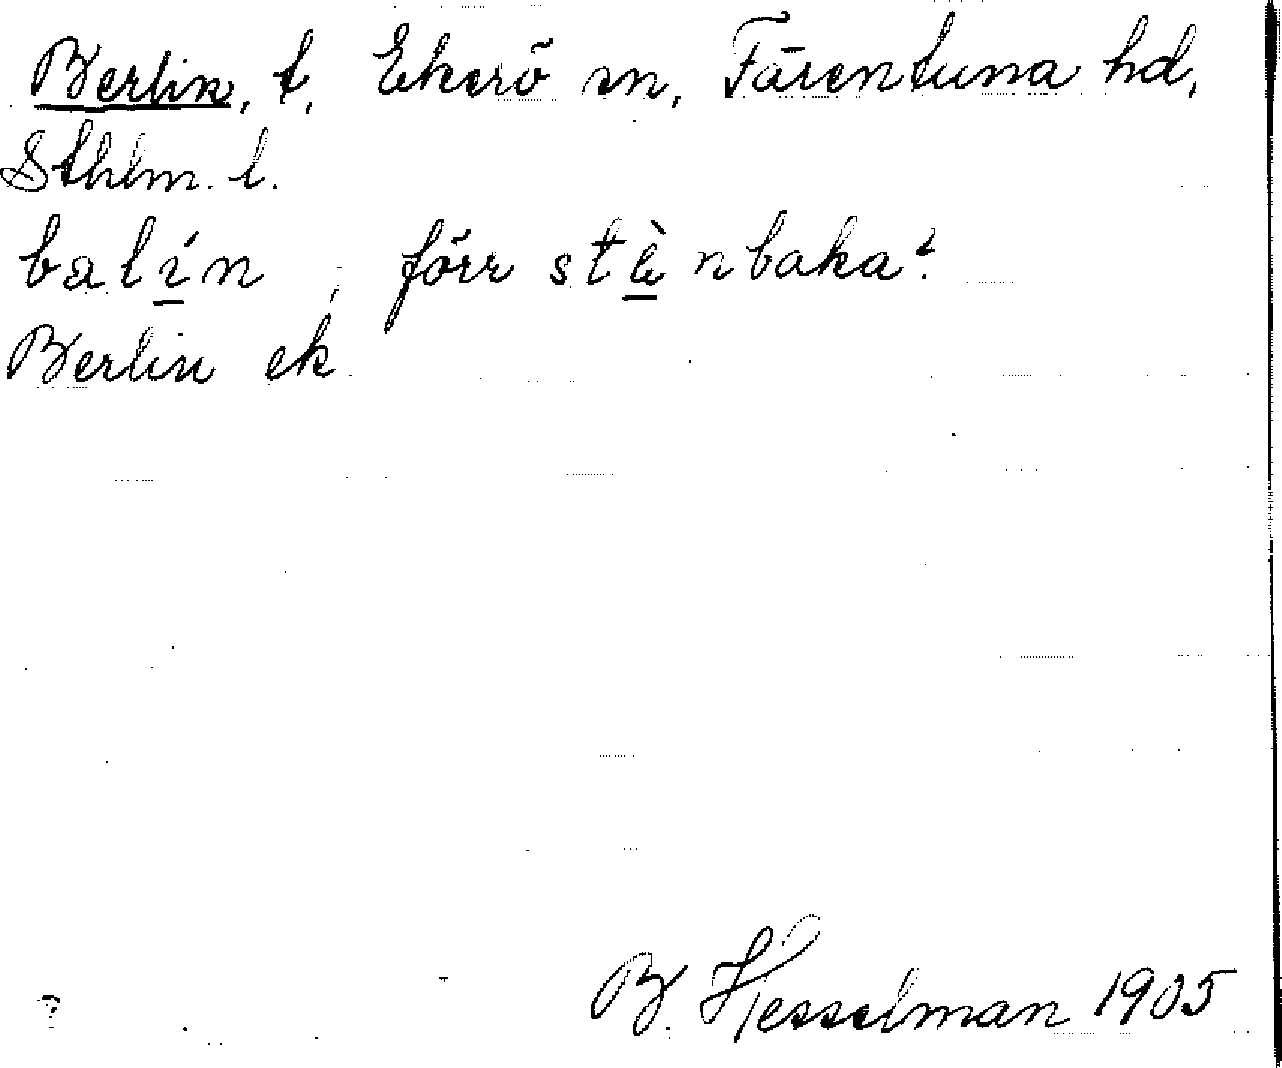 Berlin, t, Ekerö sn, Färentuna hd,
Sthlm. l.
balín, förr stènbaka?
Berlin ek
B. Hesselman 1905